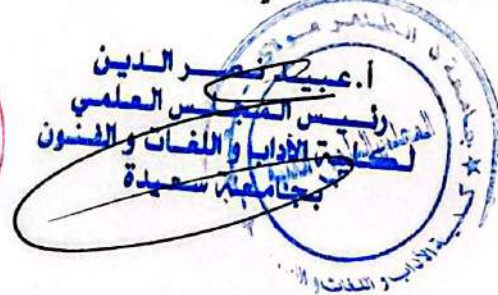 أ. عبيد نصر الدين
رئيس المجلس العلمي
لكلية الآداب و اللغات و الفنون
بجامعة سعيدة
جامعة د. الطاهر مولاي
كلية الآداب و اللغات و